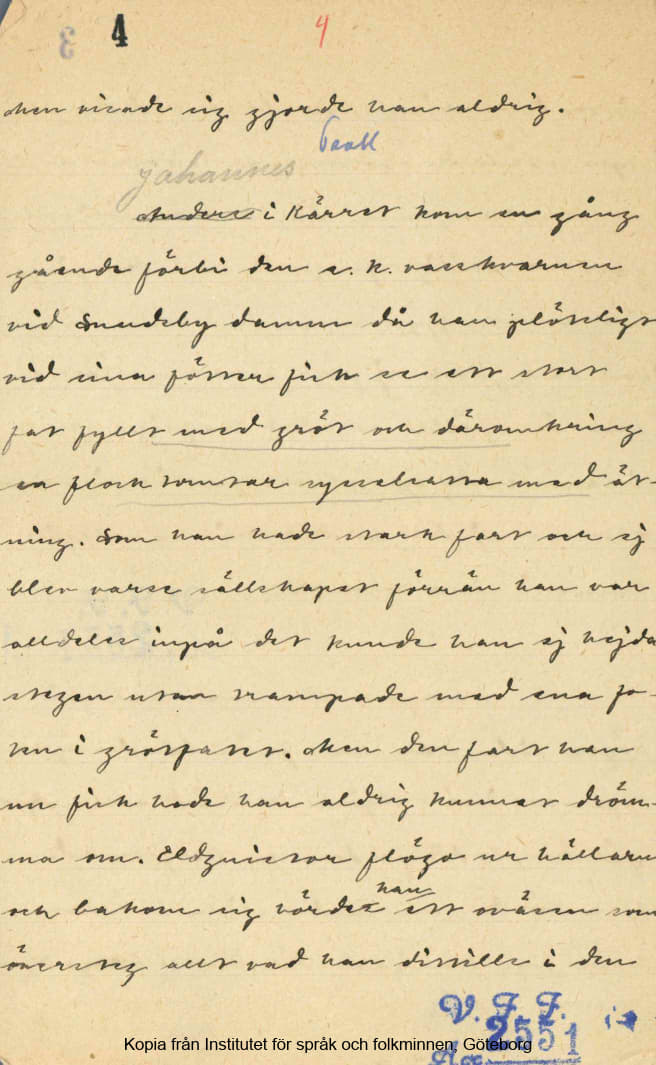 4 4
Men visade sig gjorde han aldrig.
Johannes
Anders i Kärret kom en gång
gående förbi den s. k. vasskvarnen
vid Sundeby damm då han plötsligt
vid sina fötter fick se ett stort
fat fyllt med gröt och däromkring
en flock tomtar sysselsatta med ät-
ning. Som han hade stark fart och ej
blev varse sällskapet förrän han var
alldeles inpå det kunde han ej hejda
stegen utan trampade med ena fo-
ten i grötfatet. Men den fart han
nu fick hade han aldrig kunnat dröm-
ma om. Eldgnistor flögo ur hällarn
och bakom sig hörde han ett oväsen som
översteg allt vad han dittills i den
V. F. F.
2551
Kopia från Institutet för språk och folkminnen, Göteborg